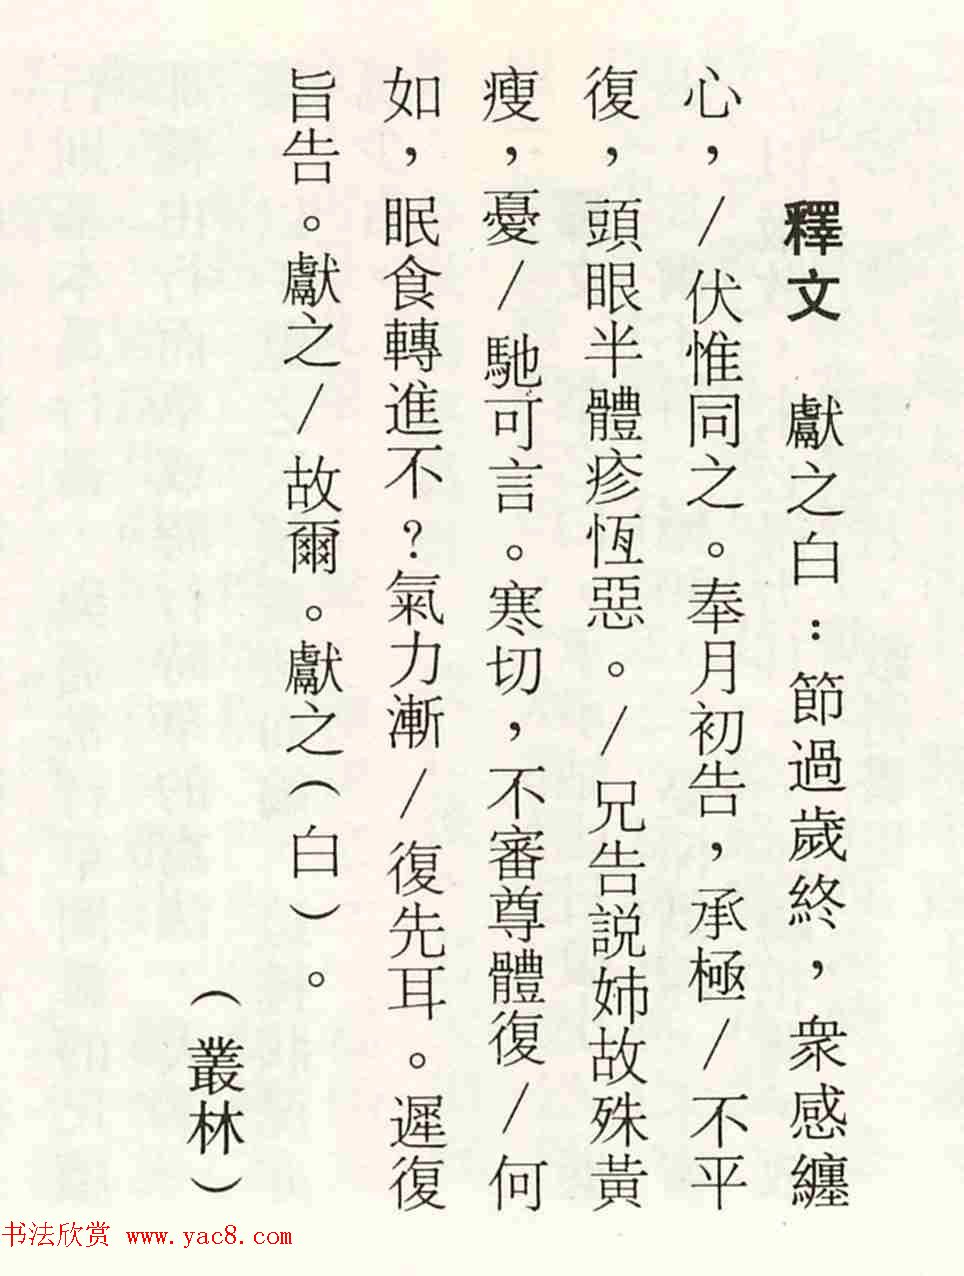 釋文 獻之白：節過歲終，衆感纏
心，/伏惟同之。奉月初告，承極/不平
復，頭眼半體疹恆惡。/兄告説姊故殊黃
瘦，憂/馳可言。寒切，不審尊體復/何
如，眠食轉進不？氣力漸/復先耳。遲復
旨告。獻之/故爾。獻之（白）。
（叢林）
书法欣赏 www.yac8.com